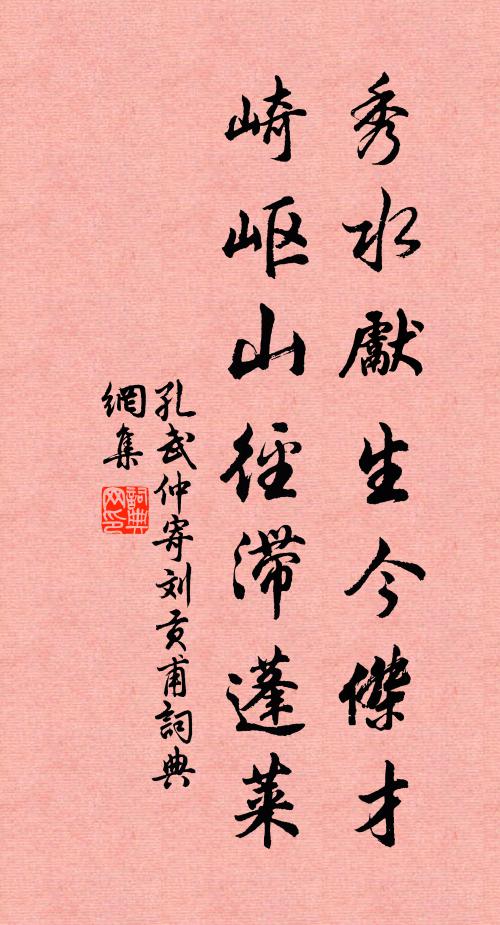 秀水獻生今傑才
崎岖山徑滯蓬萊
孔武仲寄刘贡甫詞典
網集
詞典
网印